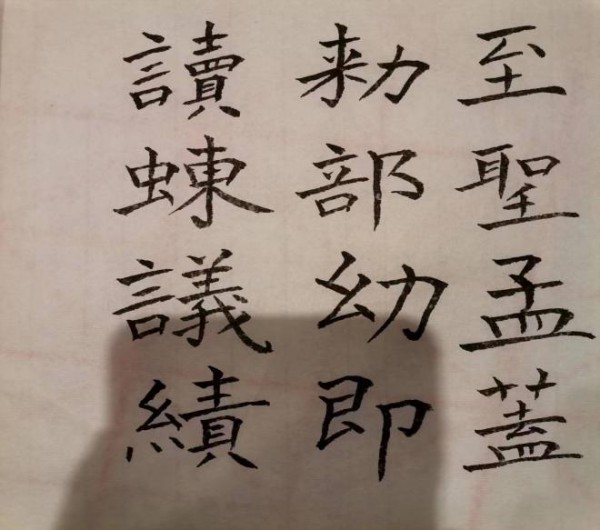 至聖孟蓋
勑部幼即
讀蝀議績